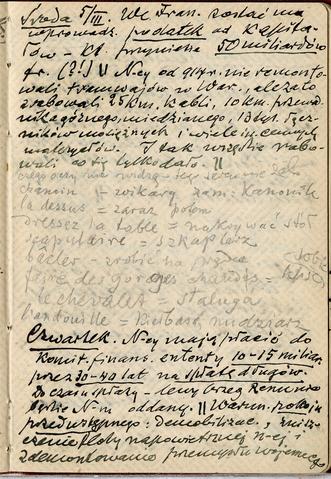 Środa 5/III. We Fran. zostać ma
wprowadz. podatek od kapita-
łów – kt. przyniesie 50 miliardów
fr. (?!) || N-cy od 914 r. nie remonto-
wali tramwajów w War., ale za to
zrabowali 25 km. kabli, 10 km. przewod
nika górnego, miedzianego, 13 tys. łącz-
ników mosiężnych i wiele in. cennych
materyałów. I tak wszędzie rabo-
wali co się tylko dało. ||
chanoin – wikary zam: Kanonik
la dessus = zaraz potem
dresser la table = nakrywać stół
scapulaire = szkaplerz
bacler – zrobić na prędce
faire des gorges chaudes =
le chevalet = sztaluga
l'andouille = kiełbasa, nudziarz
Czwartek. N-cy mają płacić do
Komit. finans. ententy 10–15 miliar.
przez 30–40 lat na spłatę długów.
Do czasu spłaty – lewy brzeg Renu nie
będzie N-m oddany. || Warun. pokoju
przedwstępnego: Demobilizac., znisz-
czenie floty napowietrznej n-ej i
zdemontowanie przemysłu wojennego